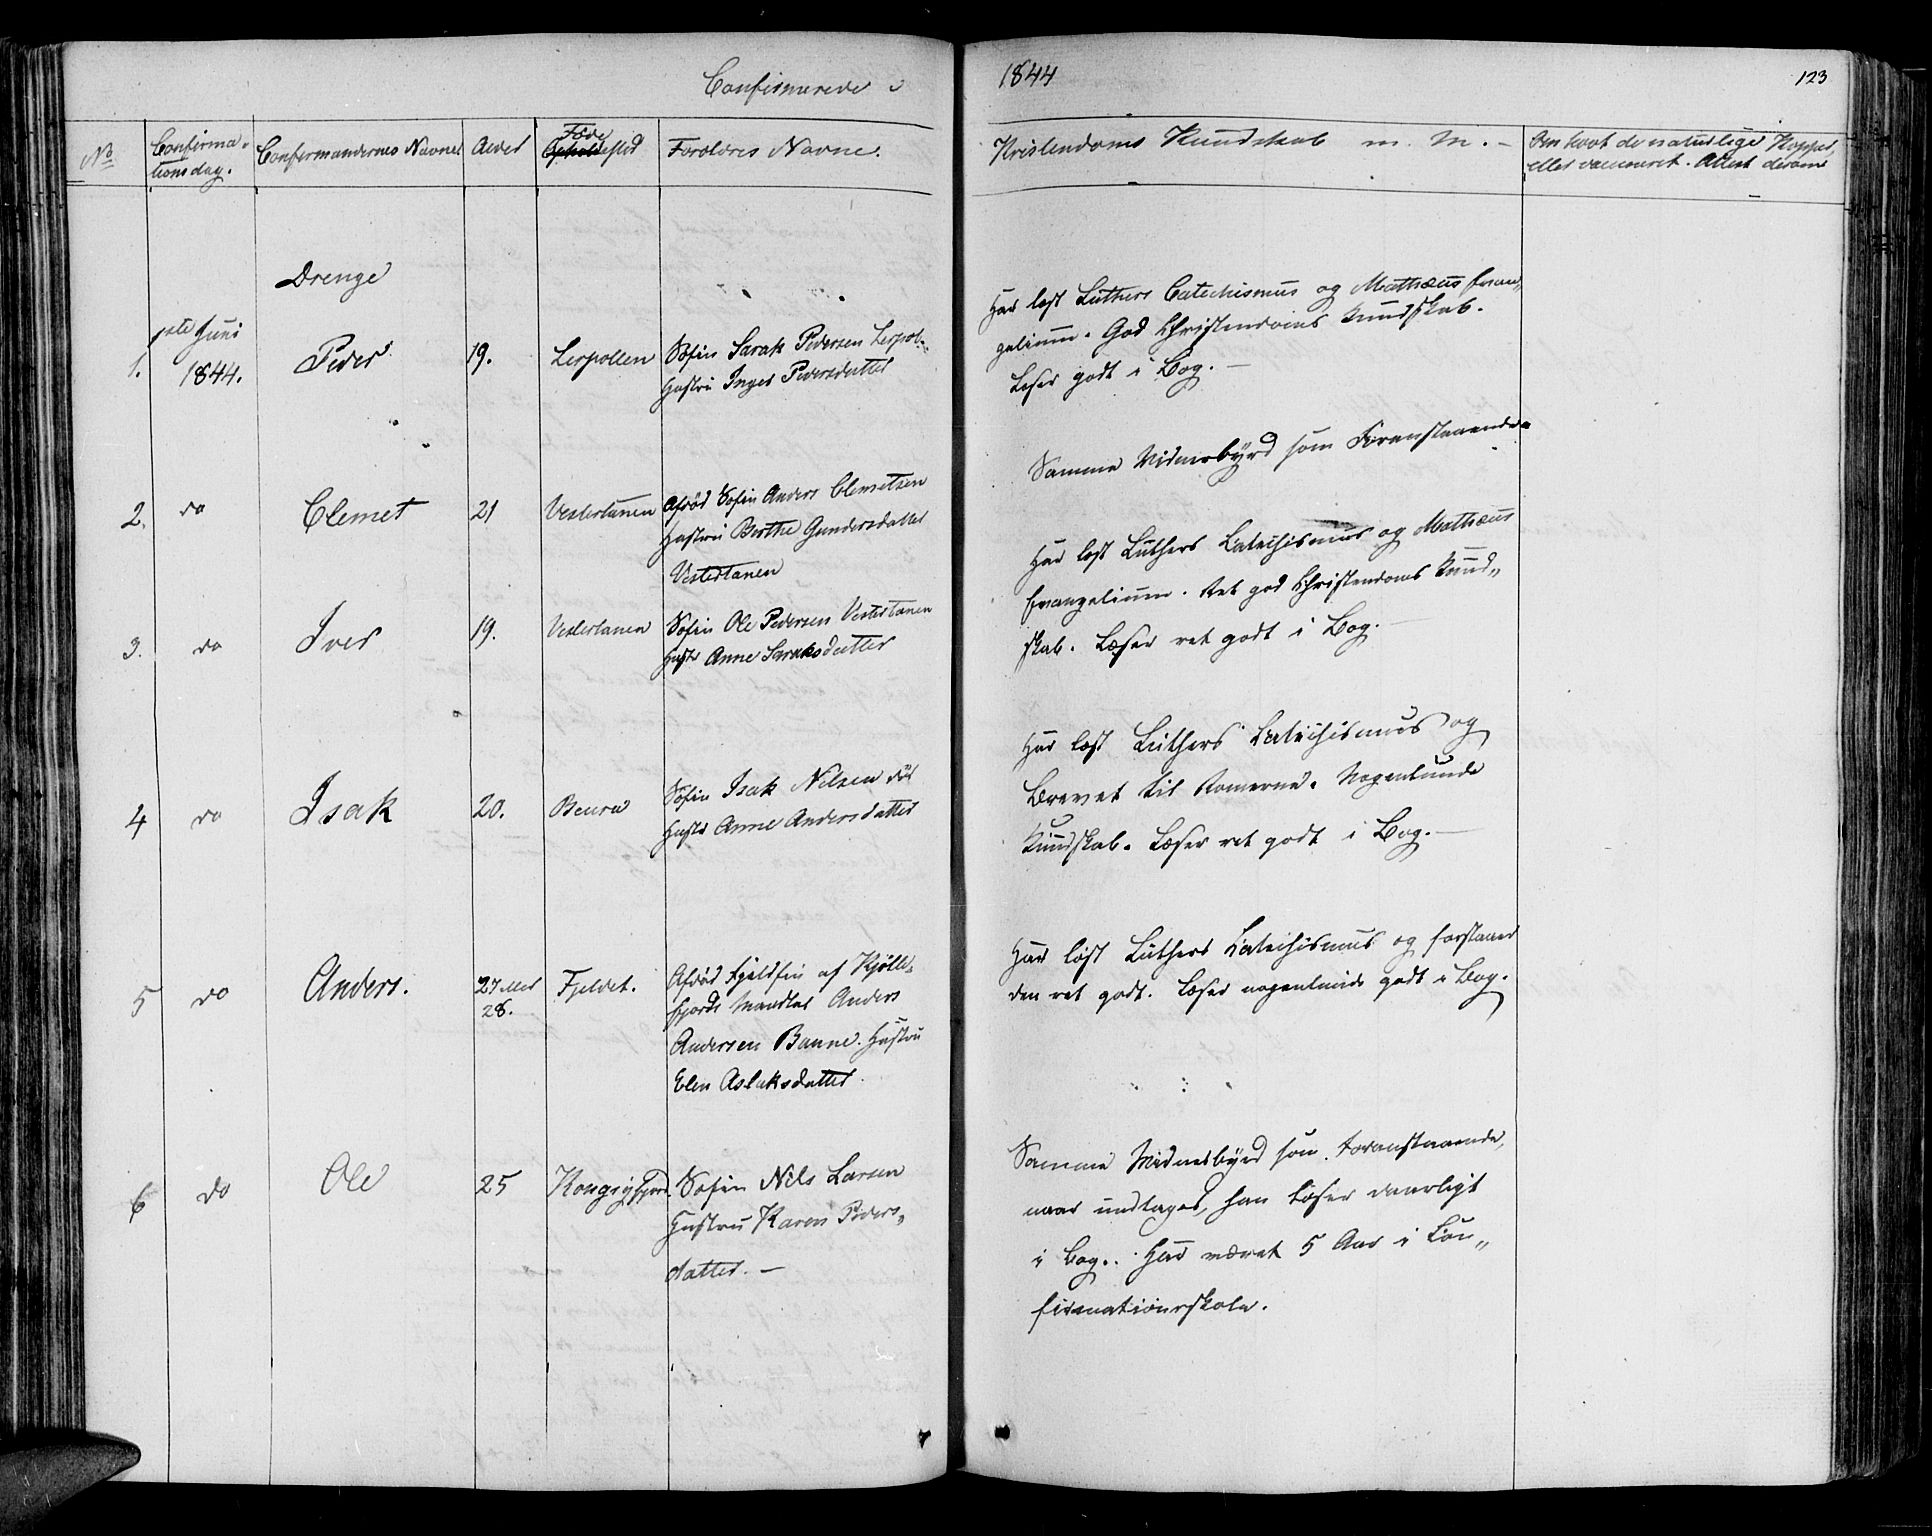 Confirmerede i
1844
123
No
Confirma-
tionsdag.
Confirmandernes Navne
Alder
Føde
Opholdssted
Forældres Navne.
Kristendoms Kundskab m. M. -
Om havt de naturlige Kopper
eller vaccineret. Attest derom
Drenge
1.
1ste Juni
1844.
Peder
19.
Lerpollen
Søfin Sarak Pedersen Lerpol-
Hustru Inger Pedersdatter
Har læst Luthers Catechismus og Mathæus Evan„
gelium. God Christendoms Kundskab.
Læser godt i Bog. —
2.
do
Clemet
21
Vestertanen
Afdød Søfin Anders Clemetsen
Hustru Berthe Gundersdatter
Vestertanen
Samme Vidnesbyrd som Foranstaaende
3.
do
Iver
19.
Vestertanen
Søfin Ole Pedersen Vestertanen
Hustr Anne Saraksdatter
Har læst Luthers Catechismus og Mathæus
Evangelium. Ret god Christendoms Kund„
skab. Læser ret godt i Bog. —
4
do
Isak
20.
Søfin Isak Nilsen
Hustr Anne Andersdatter
Har læst Luthers Catechismus og
Brevet til Romerne. Nogenlunde
Kundskab. Læser ret godt i Bog. —
5
do
Anders.
27 eller
28.
Fjeldet.
Afdød Fjeldfin af Kjölle-
fjords Mandtal Anders
Andersen Banne. Hustru
Elen Aslaksdatter.
Har læst Luthers Catechismus og forstaaer
den ret godt. Læser nogenlunde godt i Bog.
6
do
Ole
25
Kongsyfjord.
Søfin Nils Larsen
Hustru Karen Peders„
datter. —
Samme Vidnesbyrd som Foranstaaende,
naar undtages, han læser daarligt
i Bog. Har været 5 Aar i Con„
firmationsskole.